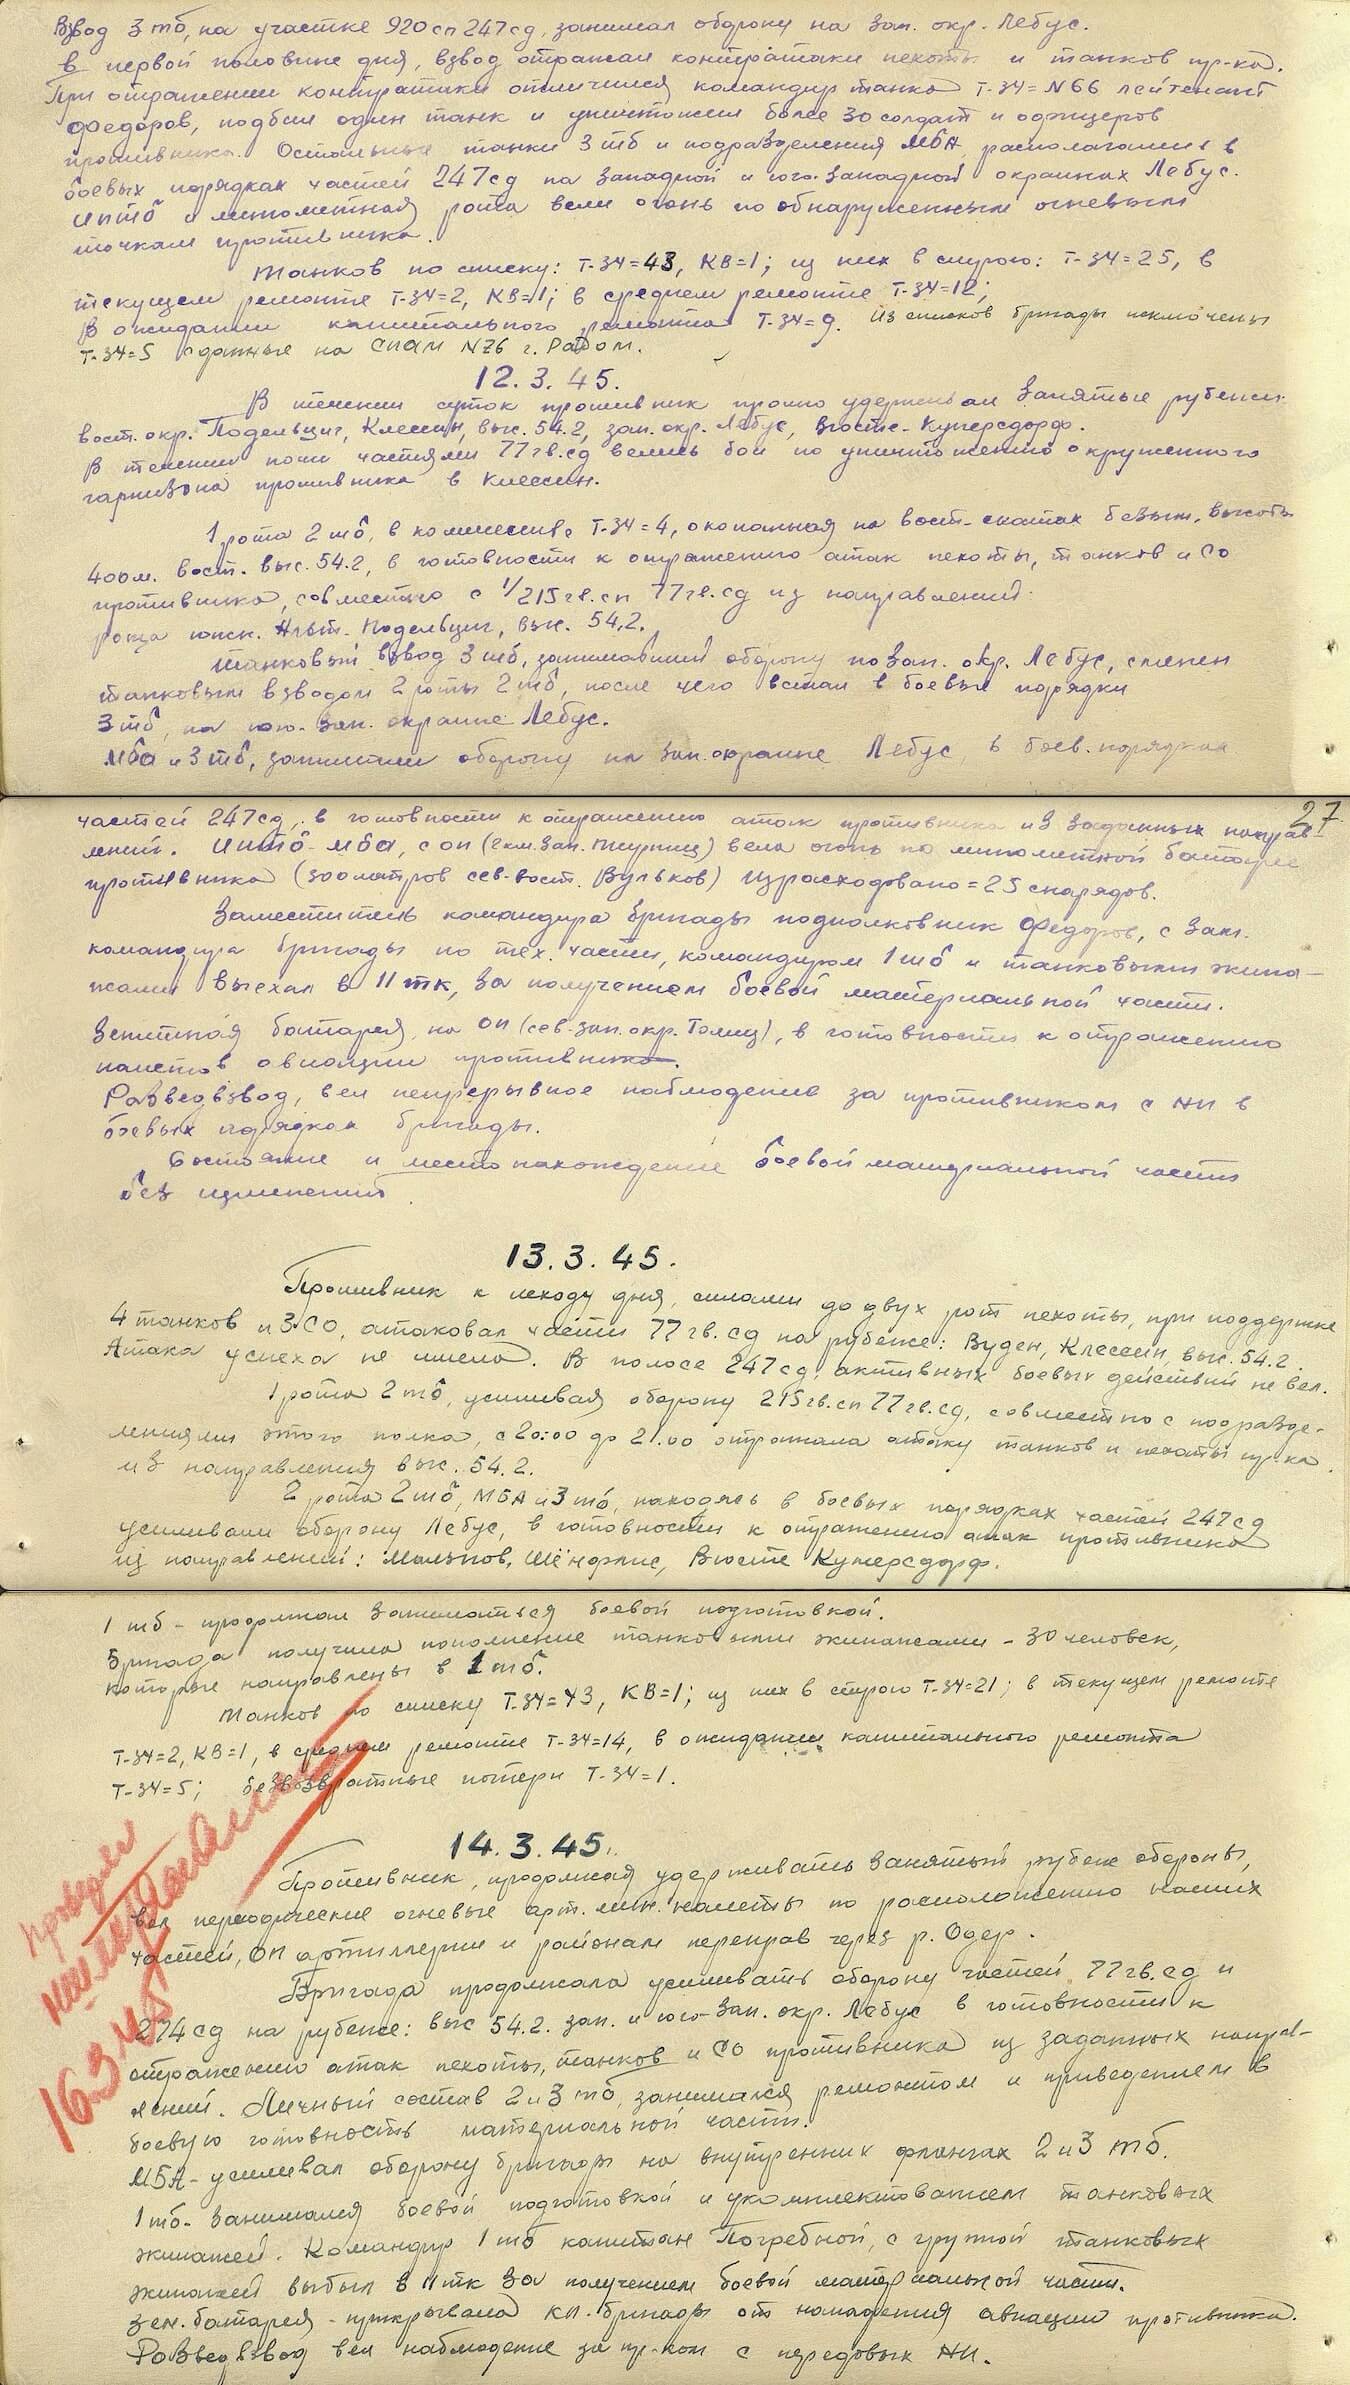 Взвод 3 тб, на участке 920 сп 247 сд, занимал оборону на зап. окр. Лебус.
В первой половине дня, взвод отражал контратаки пехоты и танков пр-ка.
При отражении контратаки отличился командир танка Т-34=N66 лейтенант
Федоров, подбил один танк и уничтожил более 30 солдат и офицеров
противника. Остальные танки 3 тб и подразделения МБА располагались в
боевых порядках частей 247 сд на западной и юго-западной окраинах Лебус.
Иптб и минометная рота вели огонь по обнаруженным огневым
точкам противника.
Танков по списку: Т-34=43, КВ=1; из них в строю: Т-34=25, в
текущем ремонте Т-34=2, КВ=1; в среднем ремонте Т-34=12;
В ожидании капитального ремонта Т-34=9. Из списков бригады исключены
Т-34=5 сданные на СПАМ N26 г. Радом.
12.3.45.
В течении суток противник прочно удерживал занятые рубежи:
вост. окр. Подельциг, Клессин, выс. 54.2, зап. окр. Лебус, Вюсте-Кунерсдорф.
В течении ночи частями 77 гв. сд велись бои по уничтожению окруженного
гарнизона противника в Клессин.
1 рота 2 тб, в количестве Т-34=4, окопанная на вост. скатах безым. высоты
400 м. вост. выс. 54.2, в готовности к отражению атак пехоты, танков и СО
противника, совместно с 1/215 гв. сп 77 гв. сд из направлений:
роща южн. Альт-Подельциг, выс. 54,2.
Танковый взвод 3 тб, занимавший оборону по зап. окр. Лебус, сменен
танковым взводом 2 роты 2 тб, после чего встал в боевые порядки
3 тб, на юго-зап. окраине Лебус.
МБА и 3 тб, занимали оборону на зап. окраине Лебус в боев. порядках
27
частей 247 сд, в готовности к отражению атак противника из заданных направ-
лений. Иптб-МБА, с оп (2 км. зап. ) вела огонь по минометной батарее
противника (300 метров сев-вост. Вульков) израсходовано=25 снарядов.
Заместитель командира бригады подполковник Федоров, с зам.
командира бригады по тех. части, командиром 1 тб и танковыми экипа-
жами выехал в 11 тк, за получением боевой материальной части.
Зенитная батарея, на ОП (сев-зап. окр. ), в готовности к отражению
налетов авиации противника.
Разведвзвод, вел непрерывное наблюдение за противником с НП в
боевых порядках бригады.
Состояние и местонахождение боевой материальной части
без изменений.
13.3.45.
Противник к исходу дня, силами до двух рот пехоты, при поддержке
4 танков и 3 СО, атаковал части 77 гв. сд на рубеже: Вуден, Клессин, выс. 54.2.
Атака успеха не имела. В полосе 247 сд, активных боевых действий не вел.
1 рота 2 тб, усиливая оборону 215 гв. сп 77 гв. сд, совместно с подразде-
лениями этого полка, с 20:00 до 21.00 отражала атаку танков и пехоты пр-ка
из направления выс. 54.2.
2 рота 2 тб, МБА и 3 тб, находясь в боевых порядках частей 247 сд
усиливали оборону Лебус, в готовности к отражению атак противника
из направлений: Мальнов, Шёнфлис, Вюсте Кунерсдорф.
1 тб - продолжал заниматься боевой подготовкой.
Бригада получила пополнение танковыми экипажами - 30 человек,
которые направлены в 1 тб.
Танков по списку Т-34=43, КВ=1; из них в строю Т-34=21; в текущем ремонте
Т-34=2, КВ=1, в среднем ремонте Т-34=14, в ожидании капитального ремонта
Т-34=5; безвозвратные потери Т-34=1.
14.3.45.
Противник, продолжая удерживать занятый рубеж обороны,
вел периодические огневые арт. мин. налеты по расположению наших
частей, ОП артиллерии и районам переправ через р. Одер.
Бригада продолжала усиливать оборону частей 77 гв. сд и
274 сд на рубеже: выс 54.2. зап. и юго-зап. окр. Лебус в готовности к
отражению атак пехоты, танков и СО противника из заданных направ-
лений. Личный состав 2 и 3 тб, занимался ремонтом и приведением в
боевую готовность материальной части.
МБА - усиливал оборону бригады на внутренних флангах 2 и 3 тб.
1 тб - занимался боевой подготовкой и укомплектованием танковых
экипажей. Командир 1 тб капитан Погребной, с группой танковых
экипажей выбыл в 11 тк за получением боевой материальной части.
Зен. батарея - прикрывала КП. бригады от нападения авиации противника.
Разведвзвод вел наблюдение за пр-ком с передовых НП.
16.3.45